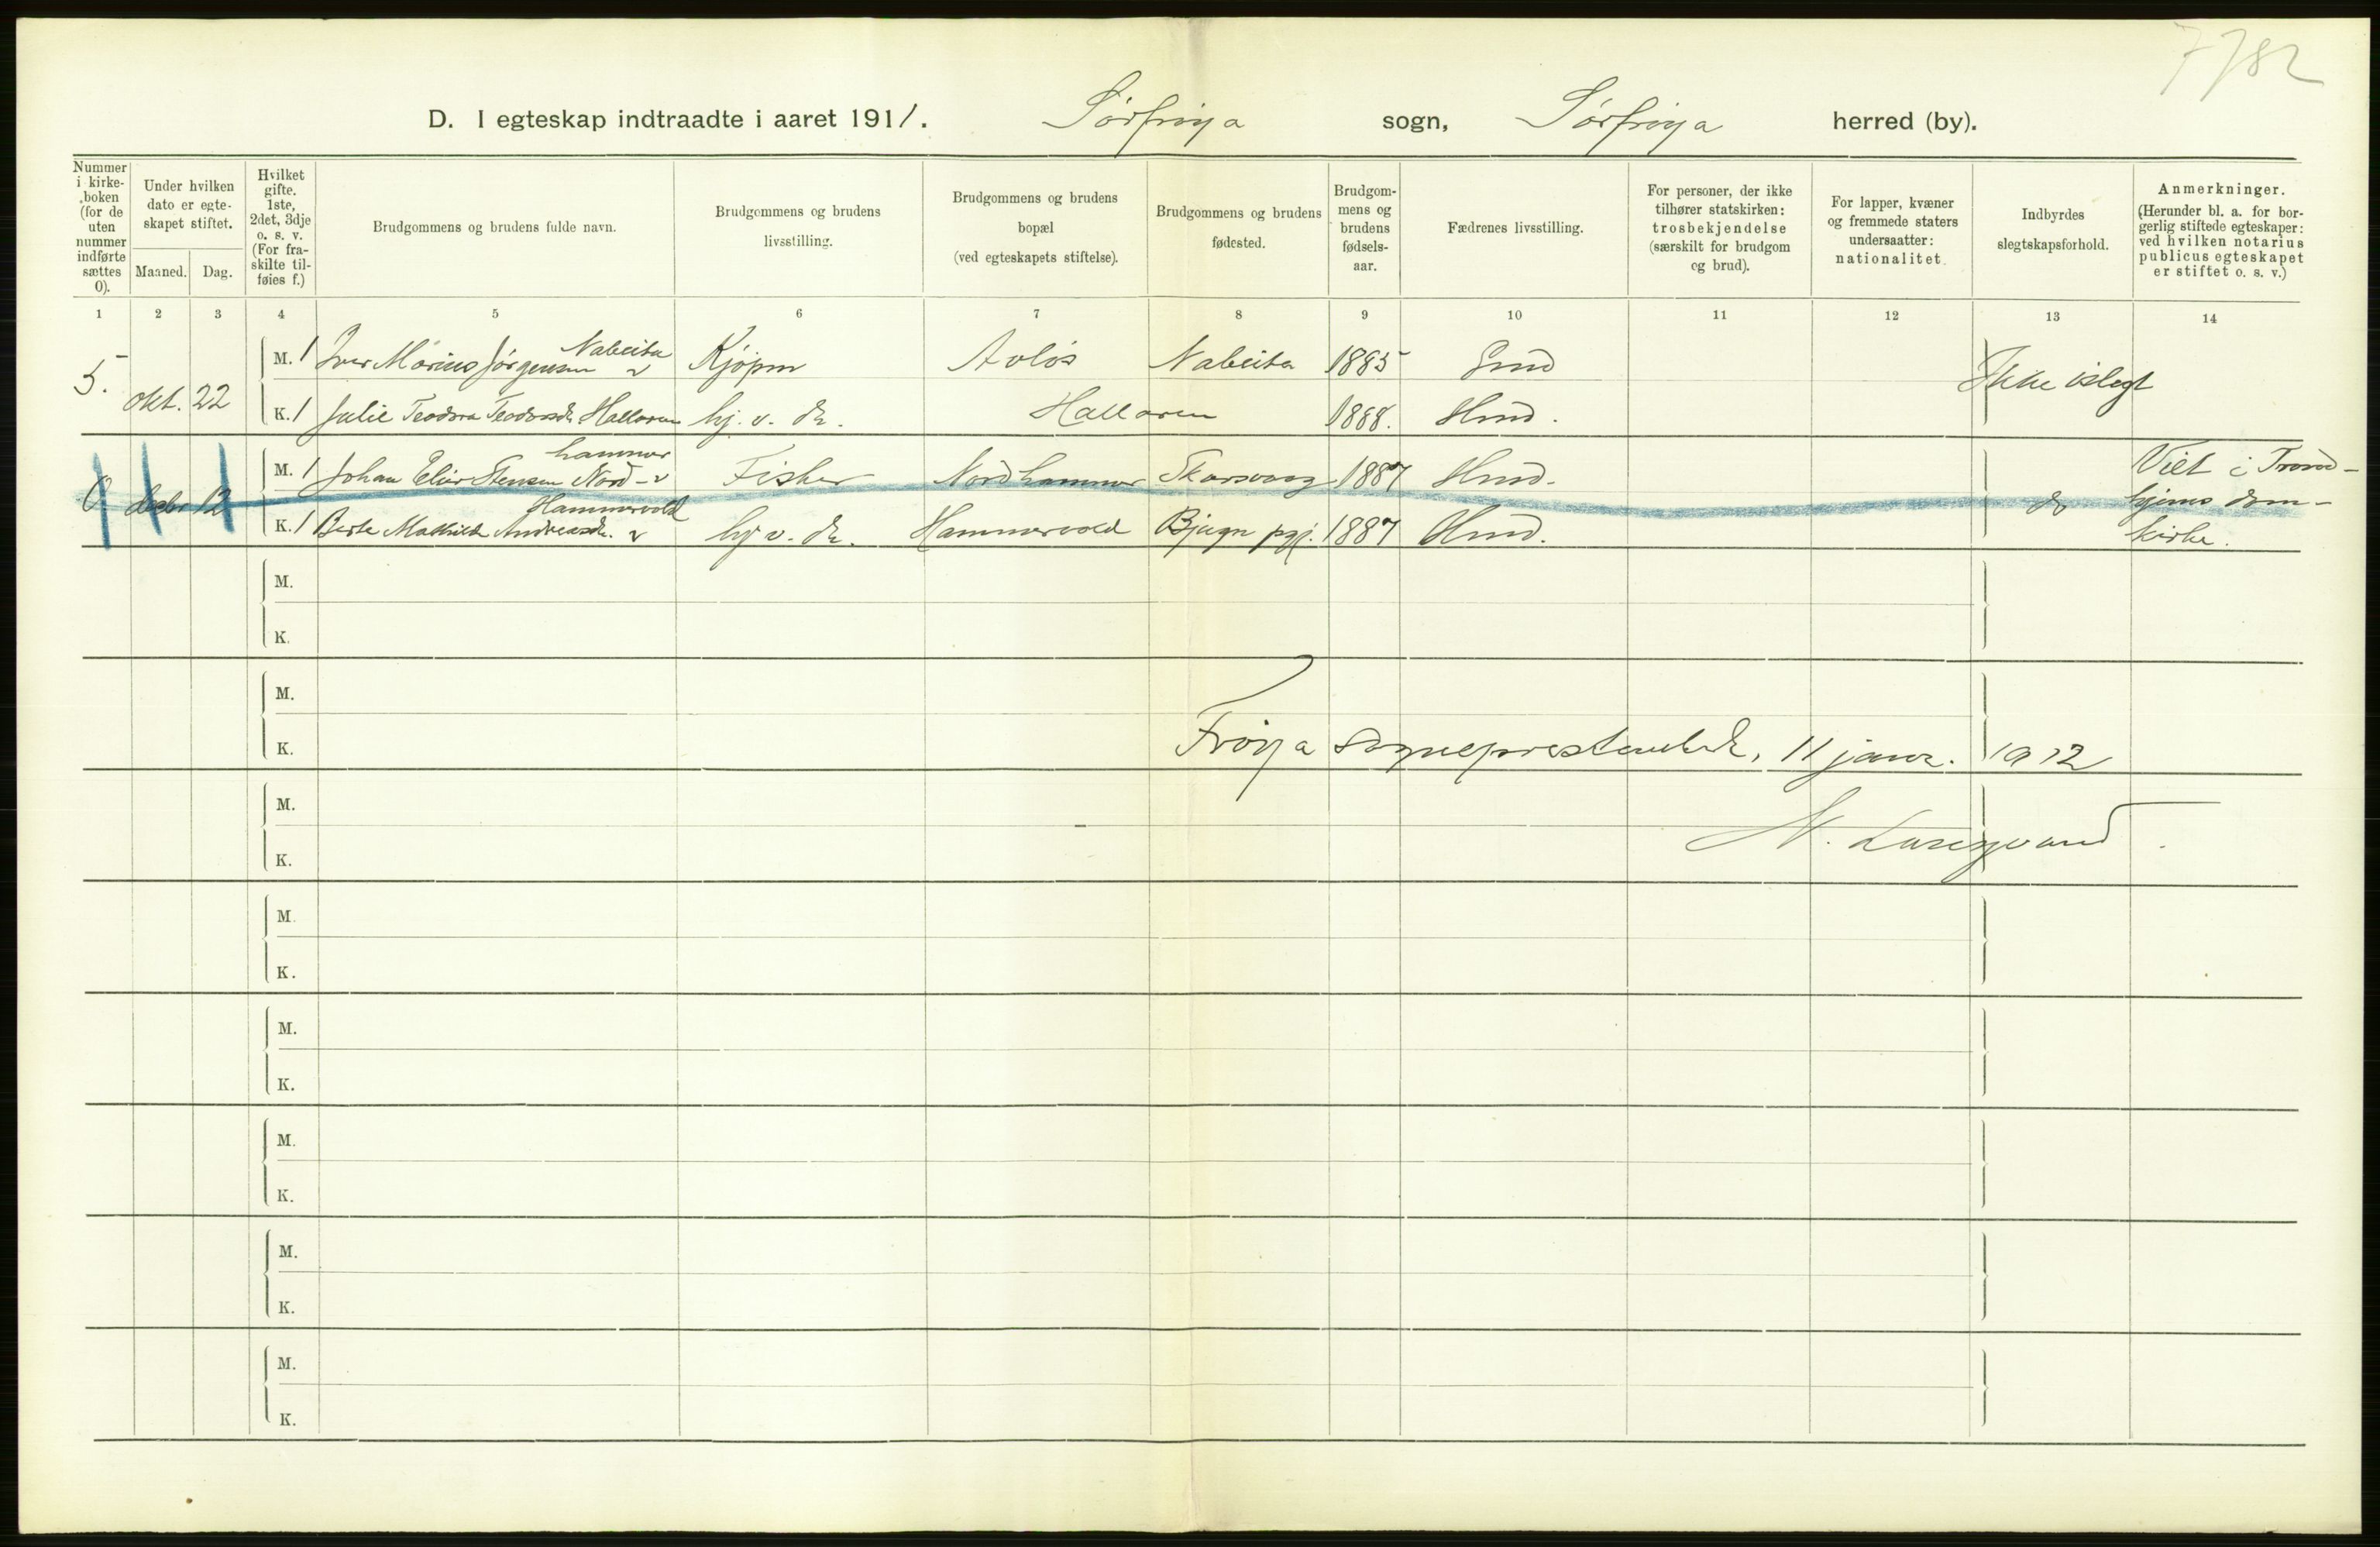 7782
D. I egteskap indtraadte i aaret 1911. Sörfröya sogn, Sörfröya herred (by).
Nummer i kirke-boken (for de uten nummer indførte sættes 0).
Under hvilken dato er egte-skapet stiftet.
Maaned. Dag.
Hvilket gifte. 1ste, 2det, 3dje o. s. v. (For fra-skilte til-føies f.)
Brudgommens og brudens fulde navn.
Brudgommens og brudens livsstilling.
Brudgommens og brudens bopæl (ved egteskapets stiftelse).
Brudgommens og brudens fødested.
Brudgom-mens og brudens fødsels-aar.
Fædrenes livsstilling.
For personer, der ikke tilhører statskirken: trosbekjendelse (særskilt for brudgom og brud).
For lapper, kvæner og fremmede staters undersaatter: nationalitet.
Indbyrdes slegtskapsforhold.
Anmerkninger. (Herunder bl. a. for bor-gerlig stiftede egteskaper: ved hvilken notarius publicus egteskapet er stiftet o. s. v.)
1 2 3 4 5 6 7 8 9 10 11 12 13 14
Nabeita
5. okt. 22 M. 1 Iver Marius Jörgensen Kjöpm Avlös Nabeita 1885 Grud Ikke islegt
K. 1 Julie Teodora Teodorsdr. Hallaren hj. v. dr. Hallaren 1888. Hmd.
hammer
0 decbr 12 M. 1 Johan Elias Stensen Nord- Fisker Nordhammer Skarsvaag 1887 Hmd. do Viet i Trond-
hjems dom-
Hammervold
K. 1 Berte Mathilde Andreasdr. hj v. dr. Hammervold Bjugn pgj. 1887 Hmd. kirke.
M.
K.
M.
K. Fröya sogneprestembede, 11 janr. 1912
M.
K.
M.
K.
M.
K.
M.
K.
M.
K.
M.
K.